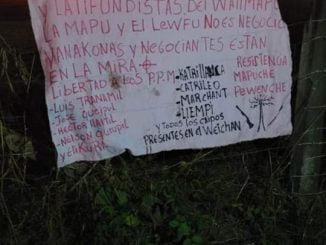 LATIFUNDISTAS DEL WALLMAPU
LA MAPU y el LeWFU NO ES NEGOCIO
YANAKONAS y NEGOCIANTES ESTAN
EN LA MIRA
LIBERTAD A LOS P.P.M
- LUIS TRANAMIL
- JOSE QUEIPUL
- HECTOR LLAITUL
- NELSON QUEUPIL
- MATRILLANCA
- CATRILEO
- MARCHANT
- LIEMPI
y TODOS LOS CAIDOS
PRESENTES EN EL WEICHAN
RESISTENCIA
MAPUCHE
PEWENCHE